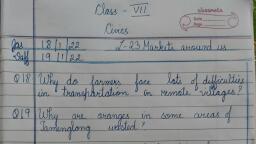 Class - VII
classmate
Date
Page
Civics
Jas 18/1/22 L-23 Markets around us
19/1/22
Q18 Why do farmers face lots of difficulties
in transportation in remote villages?
Q19 Why are oranges in some areas of
Tamenglong wasted?